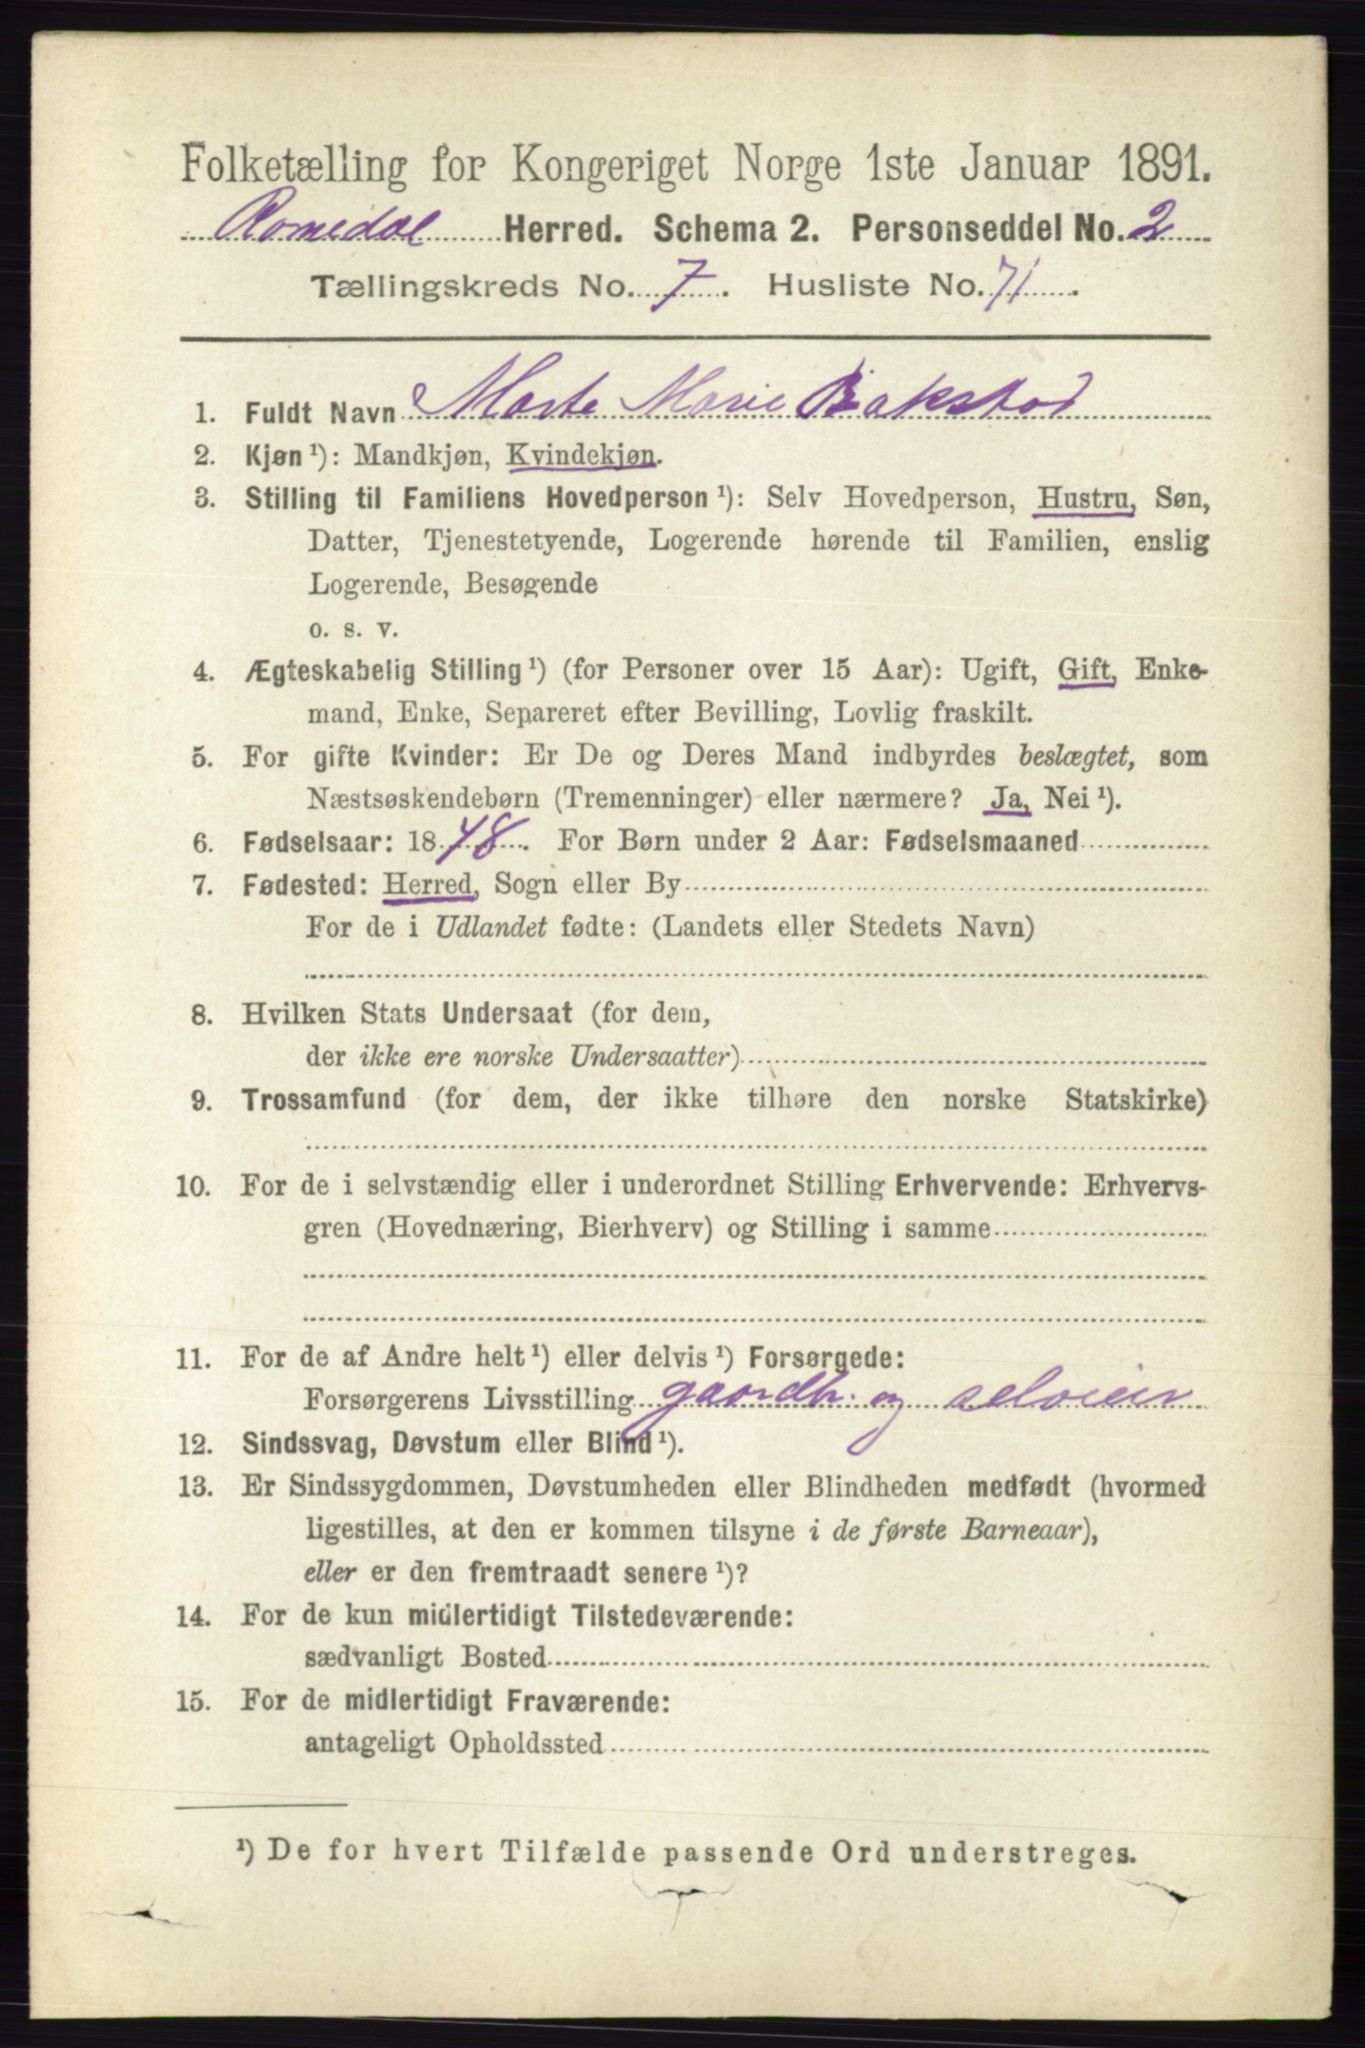 Folketælling for Kongeriget Norge 1ste Januar 1891.
Romedal Herred. Schema 2. Personseddel No. 2
Tællingskreds No. 7. Husliste No. 71.
1. Fuldt Navn Marte Marie Bakstad
2. Kjøn ¹): Mandkjøn, Kvindekjøn.
3. Stilling til Familiens Hovedperson ¹): Selv Hovedperson, Hustru, Søn,
Datter, Tjenestetyende, Logerende hørende til Familien, enslig
Logerende, Besøgende
o. s. v.
4. Ægteskabelig Stilling ¹) (for Personer over 15 Aar): Ugift, Gift, Enke-
mand, Enke, Separeret efter Bevilling, Lovlig fraskilt.
5. For gifte Kvinder: Er De og Deres Mand indbyrdes beslægtet, som
Næstsøskendebørn (Tremenninger) eller nærmere? Ja, Nei ¹).
6. Fødselsaar: 1848. For Børn under 2 Aar: Fødselsmaaned
7. Fødested: Herred, Sogn eller By
For de i Udlandet fødte: (Landets eller Stedets Navn)
8. Hvilken Stats Undersaat (for dem,
der ikke ere norske Undersaatter)
9. Trossamfund (for dem, der ikke tilhøre den norske Statskirke)
10. For de i selvstændig eller i underordnet Stilling Erhvervende: Erhvervs-
gren (Hovednæring, Bierhverv) og Stilling i samme
11. For de af Andre helt ¹) eller delvis ¹) Forsørgede:
Forsørgerens Livsstilling gaardbr. og selveier
12. Sindssvag, Døvstum eller Blind ¹).
13. Er Sindssygdommen, Døvstumheden eller Blindheden medfødt (hvormed
ligestilles, at den er kommen tilsyne i de første Barneaar),
eller er den fremtraadt senere ¹)?
14. For de kun midlertidigt Tilstedeværende:
sædvanligt Bosted
15. For de midlertidigt Fraværende:
antageligt Opholdssted
¹) De for hvert Tilfælde passende Ord understreges.